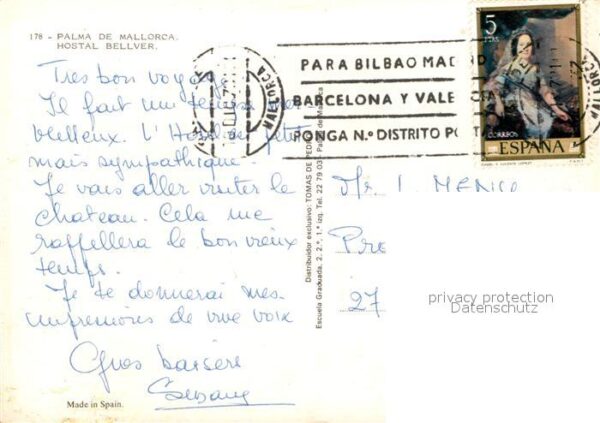 178 - PALMA DE MALLORCA.
HOSTAL BELLVER.
Tres bon voyage
Il fait un temps
veilleux. L'Hotel petit
mais sympathique.
Je vais aller visiter le
chateau. Cela me
rappellera le bon vieux
temps.
Je te donnerai mes
impressions de vive voix
Gros baisers
Made in Spain.
Distribuidor exclusivo: TOMAS DE
Escuela Graduada, 2. 2.°, 1.ª izq. Tel. 22 79 03 - Palma de Mallorca
MALLORCA
PARA BILBAO MADRID
BARCELONA Y VALENCIA
PONGA N.º DISTRITO POSTAL
5
PTAS
CORREOS
ESPAÑA
Mr
Pre
27
privacy protection
Datenschutz